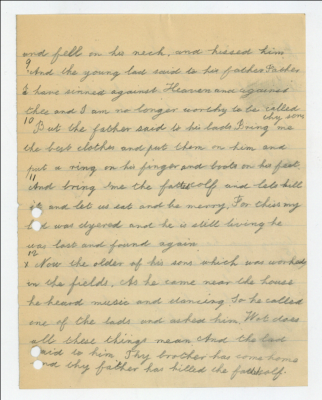 and fell on his neck, and kissed him
9
And the young lad said to his father Father
I have sinned against Heaven and against
thee and I am no longer worthy to be called
thy son
10
But the father said to his lads Bring me
the best clothes and put them on him and
put a ring on his finger and boots on his feet.
11
And bring me the fatted calf and lets kill
it and let us eat and be merry, For this my
lad was dyeed and he is still living he
was lost and found again.
12
x Now the older of his sons which was worked
in the fields, As he came near the house
he heard music and dancing So he called
one of the lads and asked him, Wot does
all these things mean And the lad
said to him, Thy brother has come home
and thy father has killed the fatted calf.